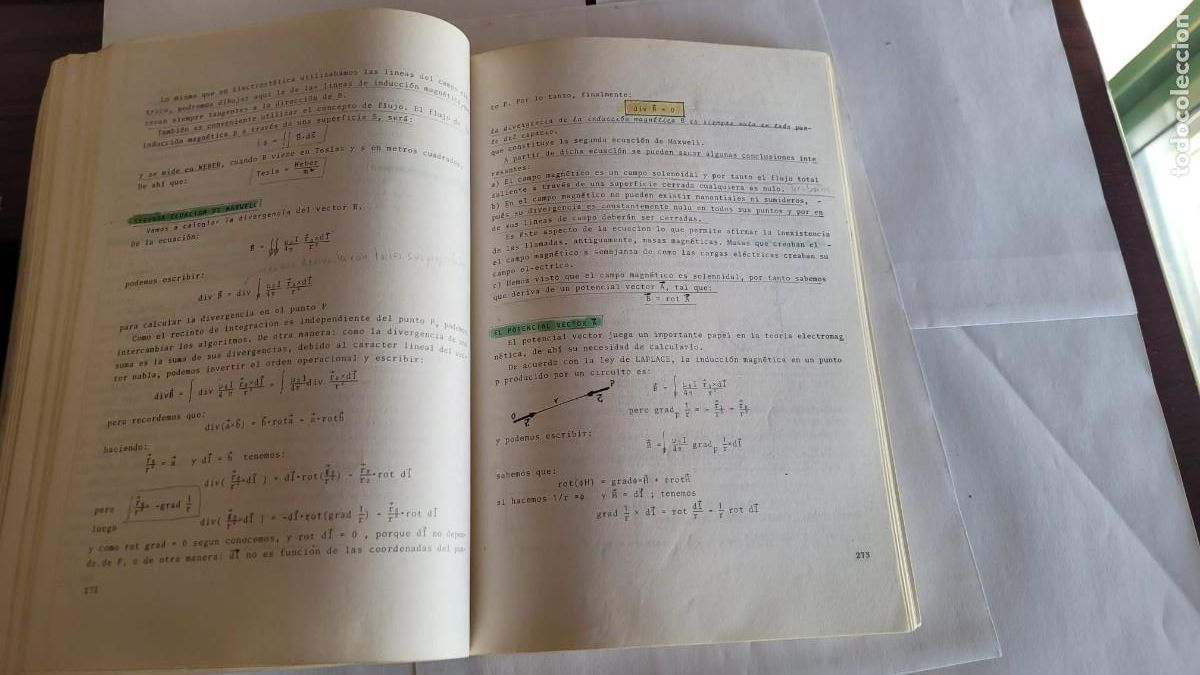 Lo mismo que en Electrostática utilizábamos las líneas del campo
trico, podremos dibujar aquí la de las líneas de inducción magnética,
serán siempre tangentes a la dirección de B.
También es conveniente utilizar el concepto de flujo. El flujo de
inducción magnética B a través de una superficie S, será:
ϕ = ∬ B·dS
y se mide en WEBER, cuando B viene en Teslas y s en metros cuadrados.
De ahí que:
Tesla = Weber/m²
SEGUNDA ECUACION DE MAXWELL
Vamos a calcular la divergencia del vector B.
De la ecuación:
podemos escribir:
para calcular la divergencia en el punto P
Como el recinto de integración es independiente del punto P, podemos
intercambiar los algoritmos. De otra manera: como la divergencia de una
suma es la suma de sus divergencias, debido al caracter lineal del vec-
tor nabla, podemos invertir el orden operacional y escribir:
pero recordemos que:
div(a⃗×b⃗) = b⃗·rota⃗ - a⃗·rotb⃗
haciendo:
y dl⃗ = b⃗ tenemos:
pero
luego
y como rot grad = 0 segun conocemos, y rot dl⃗ = 0 , porque dl⃗ no depen-
de de P, o de otra manera: dl⃗ no es función de las coordenadas del pun-
272
to P. Por lo tanto, finalmente:
div B⃗ = 0
la divergencia de la inducción magnética B es siempre nula en todo pun-
to del espacio.
que constituye la segunda ecuación de Maxwell.
A partir de dicha ecuación se pueden sacar algunas conclusiones inte
resantes:
a) El campo magnético es un campo solenoidal y por tanto el flujo total
saliente a través de una superficie cerrada cualquiera es nulo.
b) En el campo magnético no pueden existir manantiales ni sumideros, -
pués su divergencia es constantemente nula en todos sus puntos y por en
de sus líneas de campo deberán ser cerradas.
Es éste aspecto de la ecuacion lo que permite afirmar la inexistencia
de las llamadas, antiguamente, masas magnéticas. Masas que creaban el -
el campo magnético a semejanza de como las cargas eléctricas creaban su
campo el-ectrico.
c) Hemos visto que el campo magnético es solenoidal, por tanto sabemos
que deriva de un potencial vector A⃗, tal que:
B⃗ = rot A⃗
EL POTENCIAL VECTOR A⃗
El potencial vector juega un importante papel en la teoría electromag
nética, de ahí su necesidad de calcularlo.
De acuerdo con la ley de LAPLACE, la inducción magnética en un punto
P producido por un circuito es:
O r P
y podemos escribir:
sabemos que:
rot(ϕH⃗) = gradϕ×H⃗ + ϕrotH⃗
si hacemos 1/r =ϕ y H⃗ = dl⃗ ; tenemos
grad 1/r × dl⃗ = rot dl⃗/r - 1/r rot dl⃗
273
todocoleccion